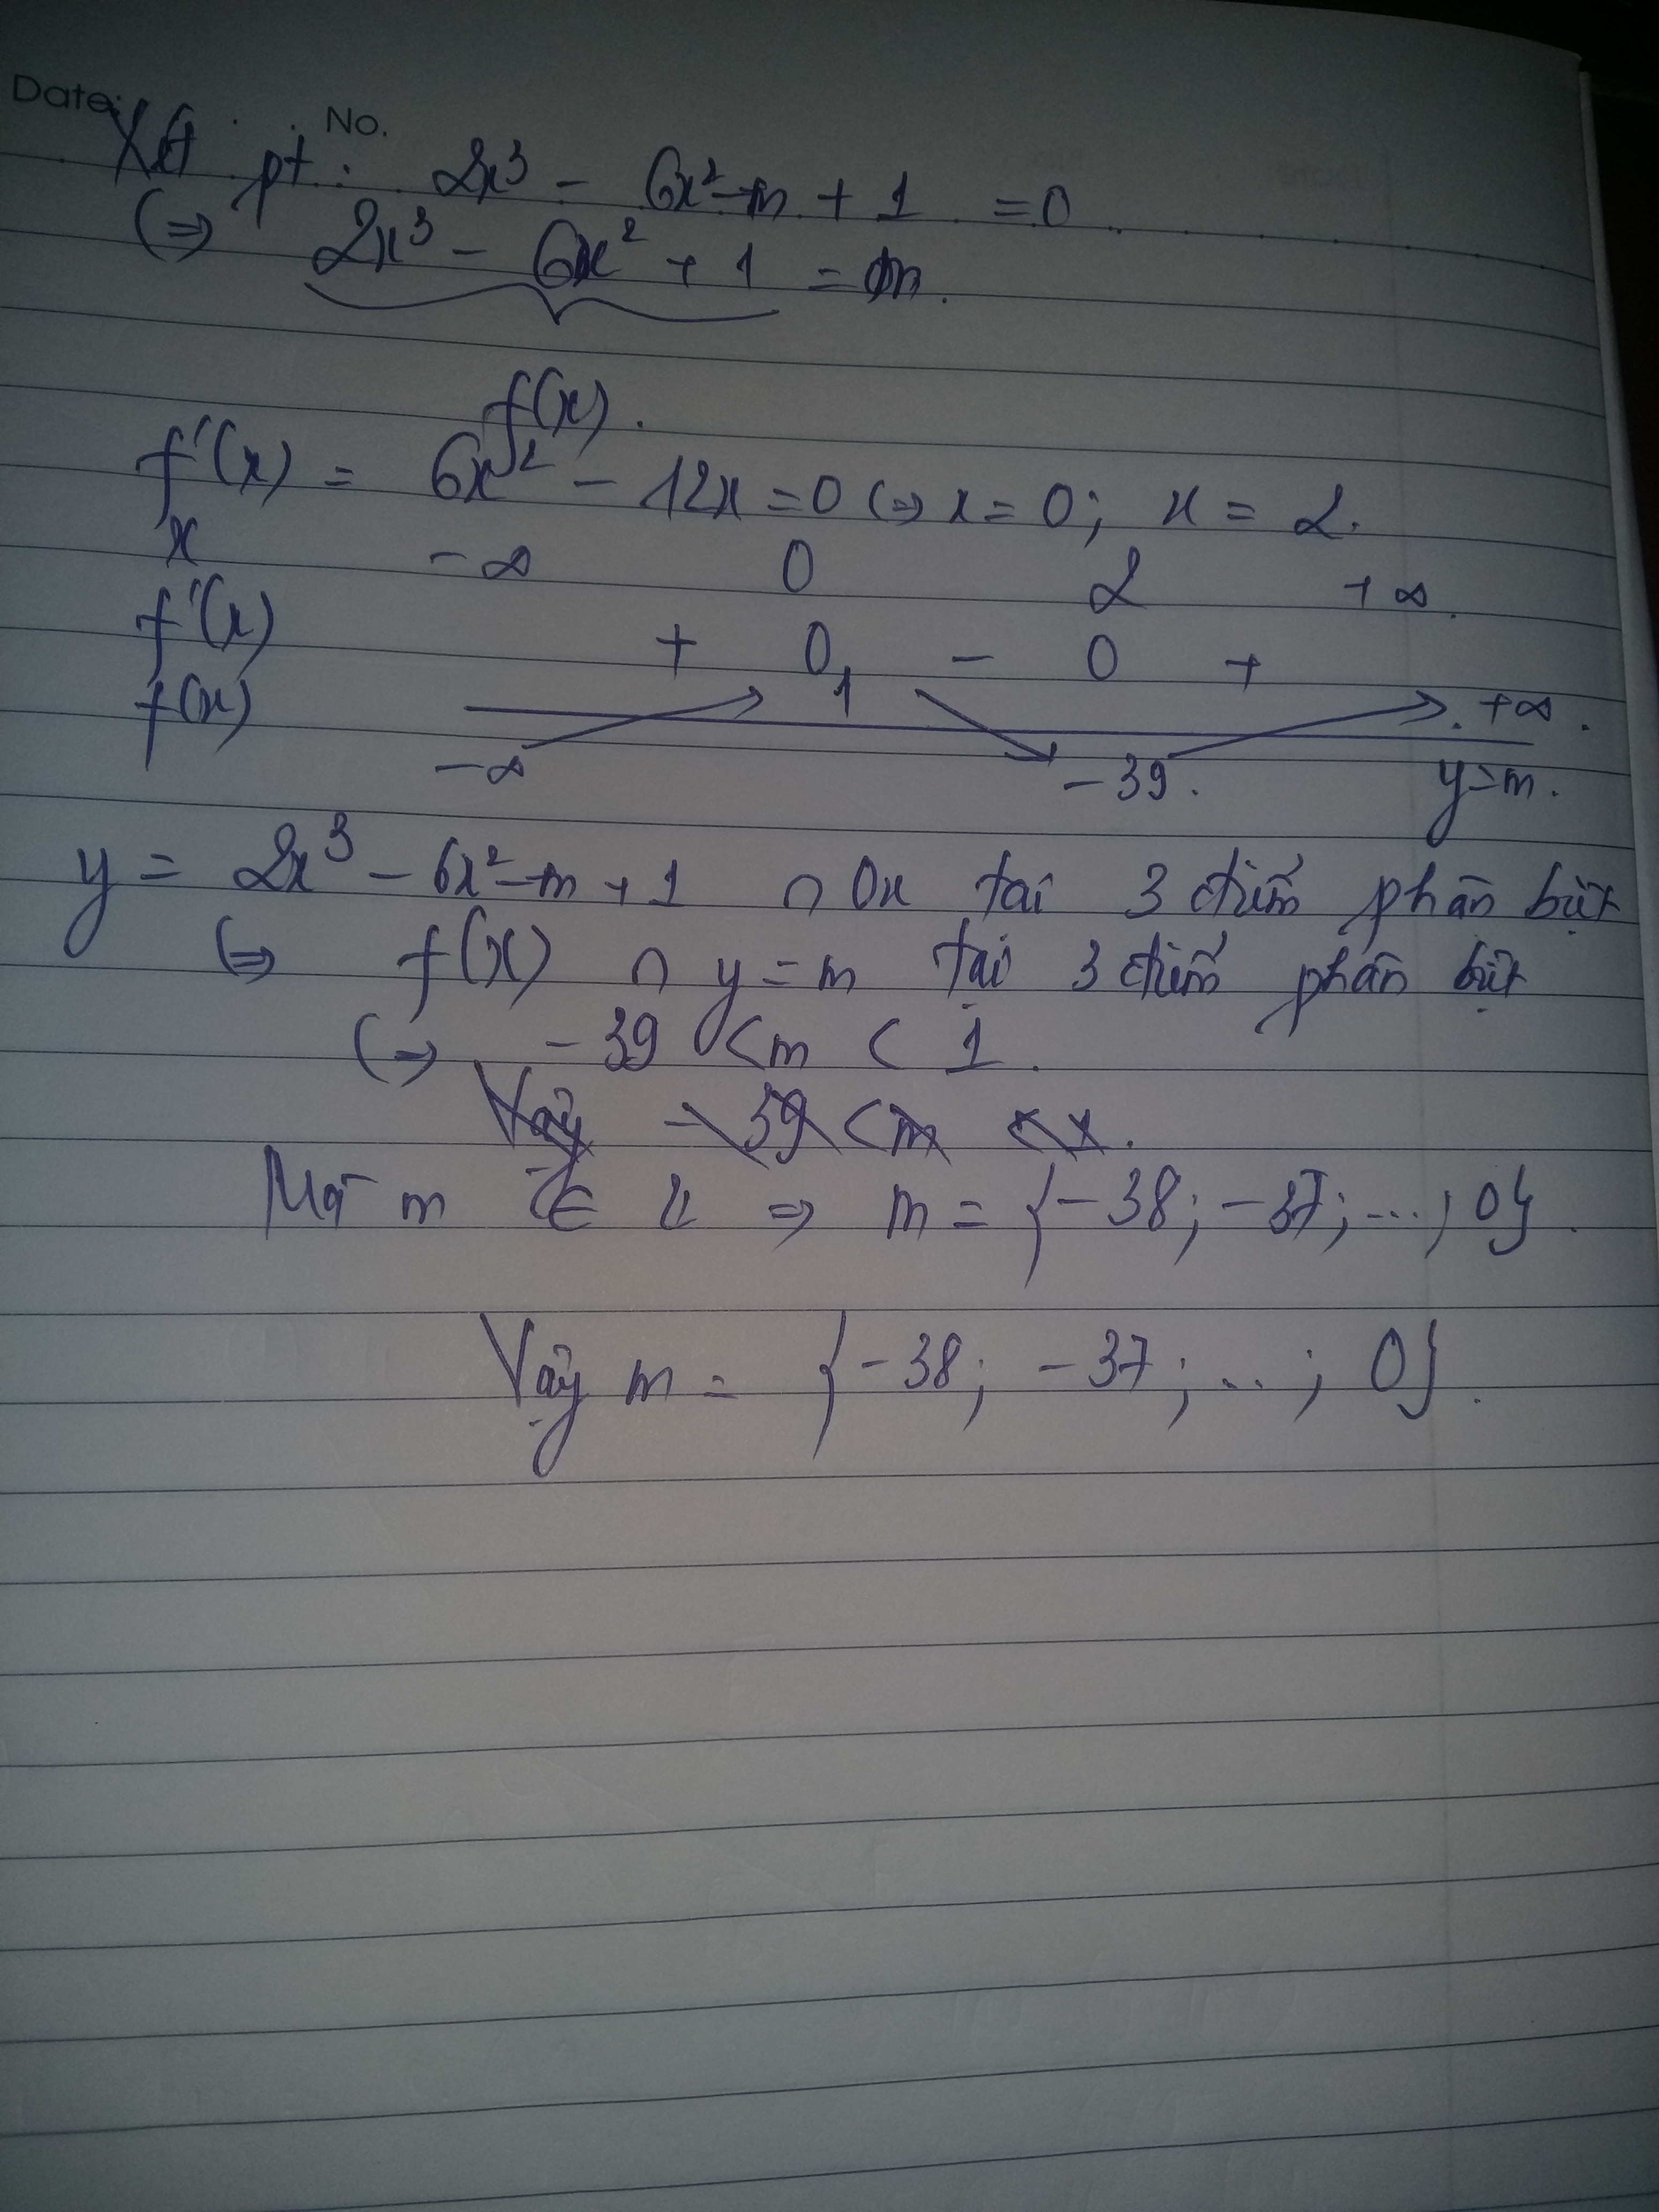 Date: No.
Xét pt: 2x³ - 6x² - m + 1 = 0
(⇒ 2x³ - 6x² + 1 = m.
f(x).
f'(x) = 6x² - 12x = 0 (⇒ x = 0; x = 2.
x -∞ 0 2 +∞
f'(x) + 0 - 0 +
f(x) 1 +∞.
-∞ -39. y = m.
y = 2x³ - 6x² - m + 1 ∩ Ox tại 3 điểm phân biệt
(⇒ f(x) ∩ y = m tại 3 điểm phân biệt
(⇒ -39 < m < 1.
Vậy -39 < m <
Mà m ∈ Z ⇒ m = {-38; -37; ...; 0}.
Vậy m = {-38; -37; ...; 0}.